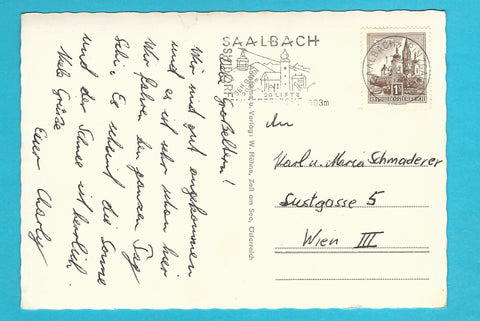 Liebe Großeltern!
Wir sind gut angekommen
und es ist sehr schön hier
Wir fahren den ganzen Tag
Schi. Es scheint die Sonne
und der Schnee ist herrlich.
Viele Grüsse
Euer Charly
SAALBACH
20 LIFTE
1003m
u. Verlag: W. Höhne, Zell am See, Österreich
An
Karl u. Maria Schmaderer
Sustgasse 5
Wien III